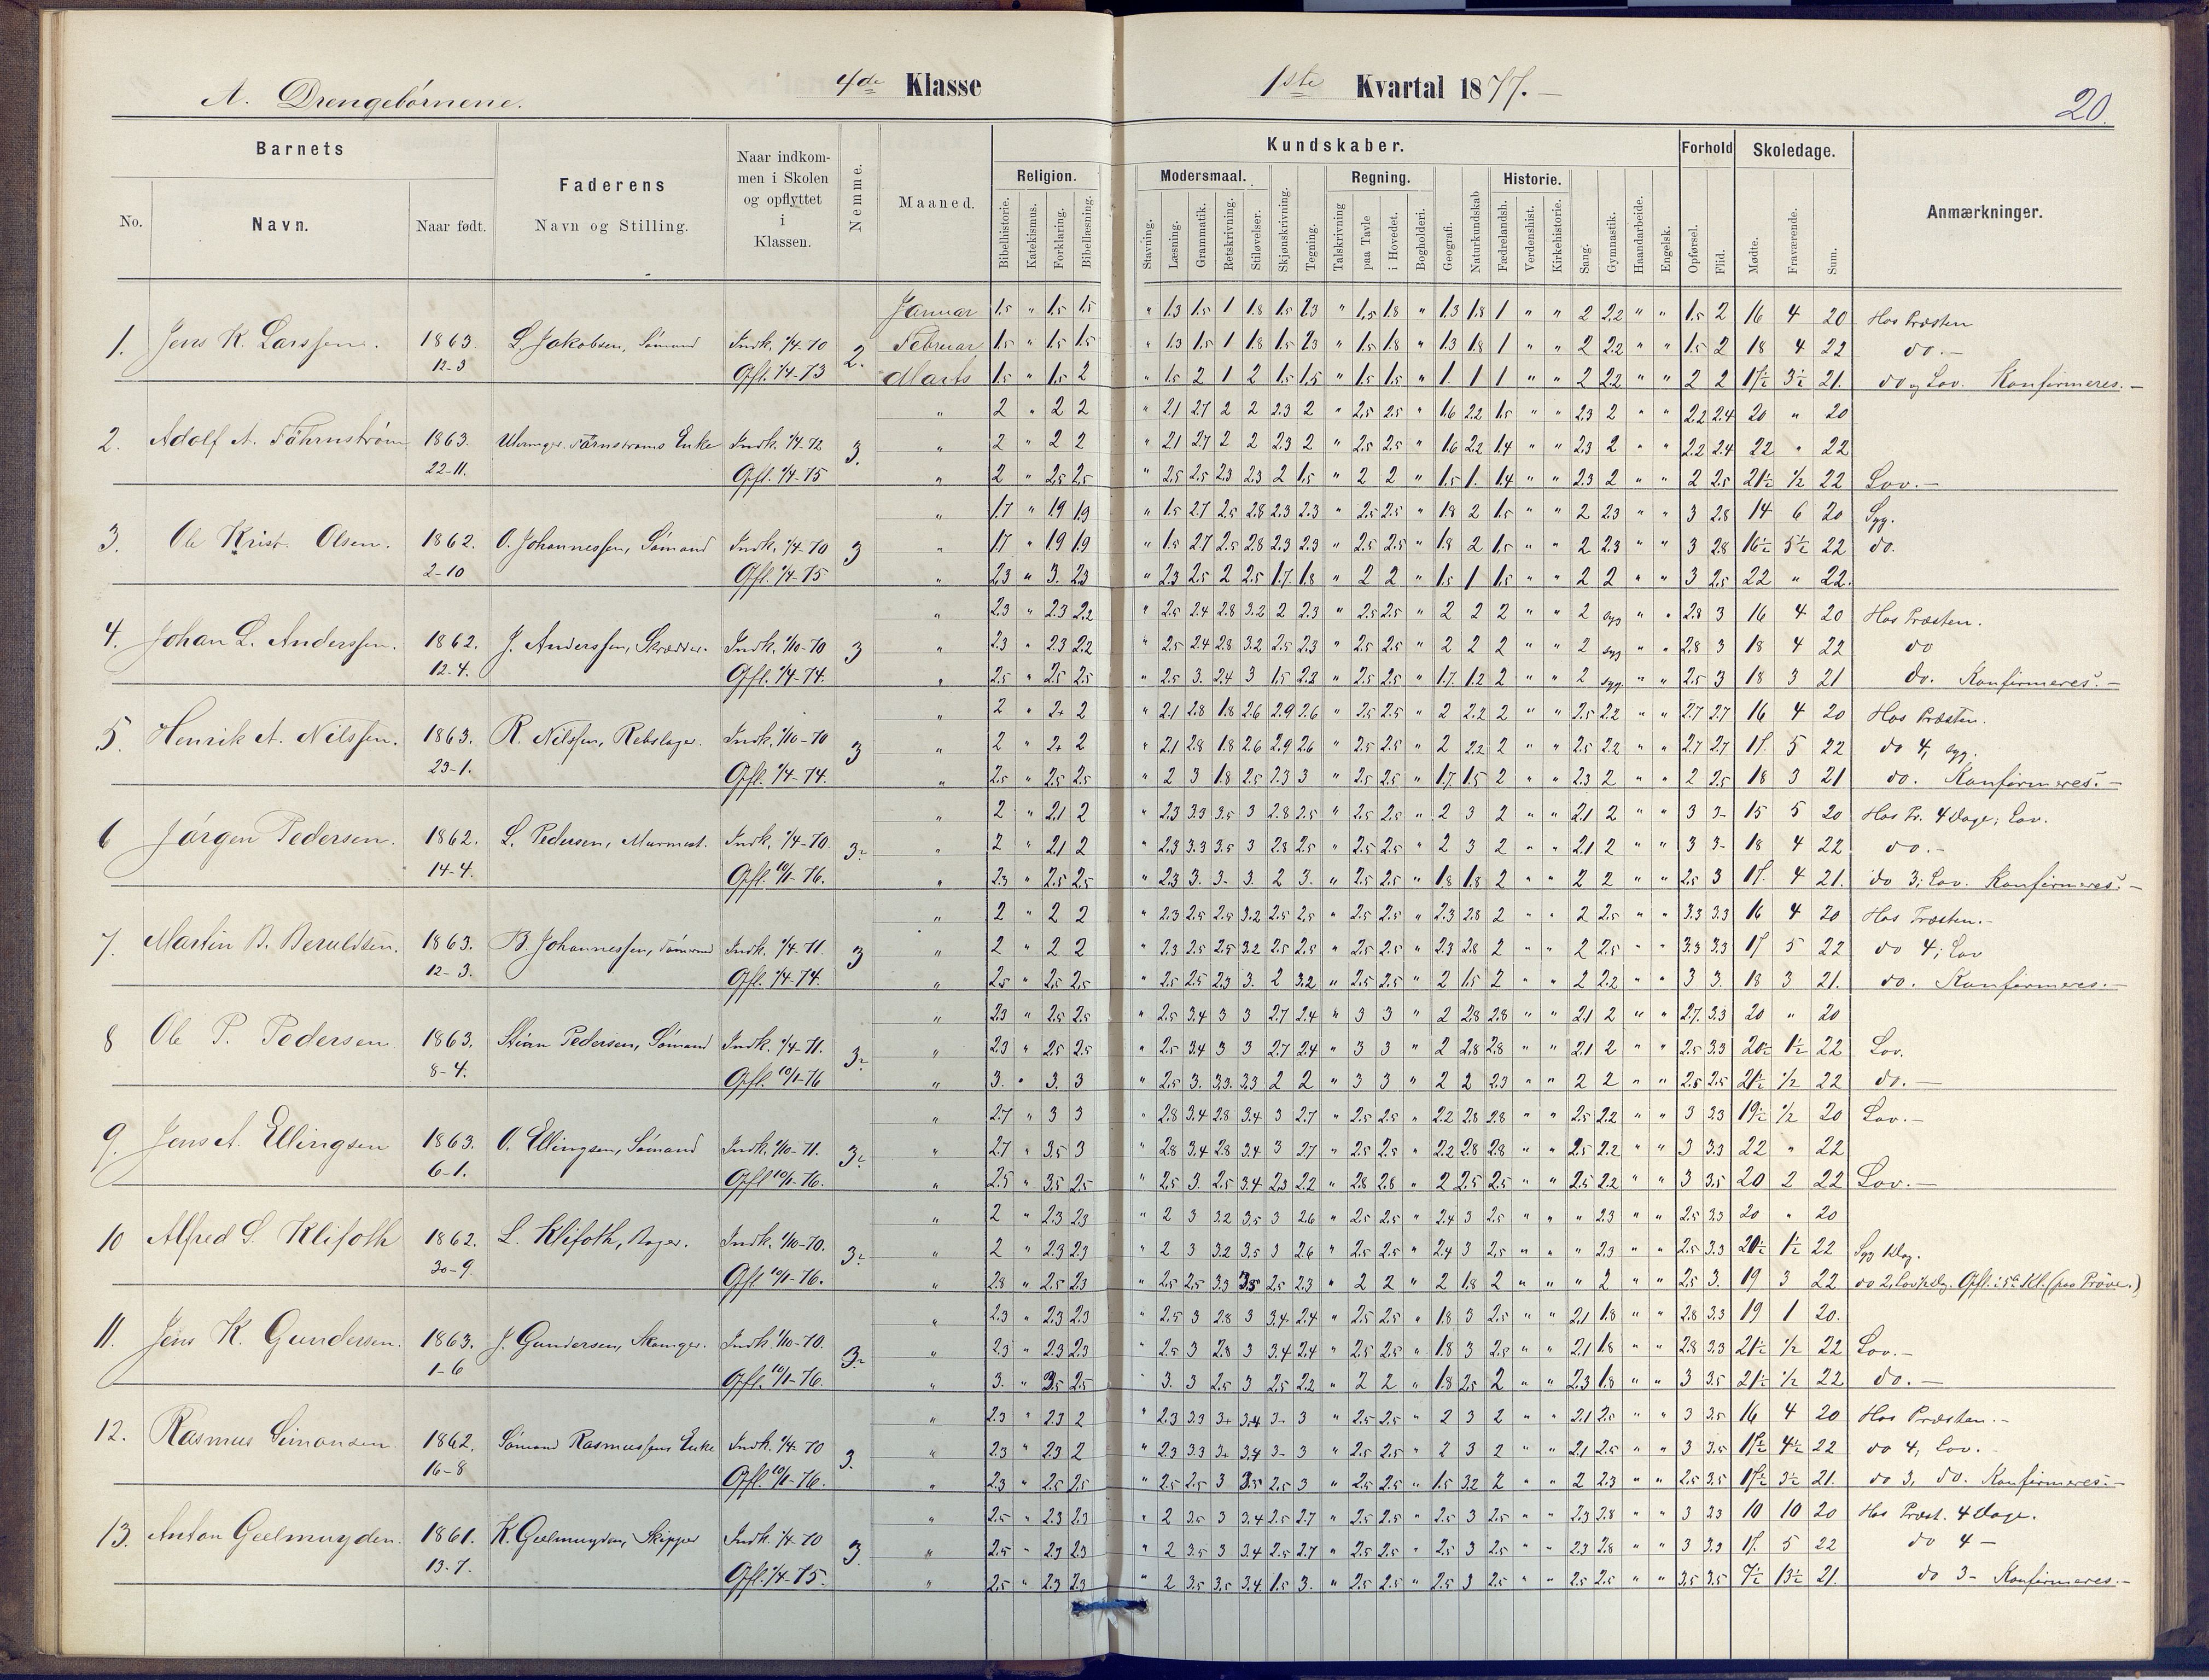 A. Drengebørnene. 4de Klasse 1ste Kvartal 1877. 20.
Barnets Faderens Naar indkommen i Skolen og opflyttet i Klassen. Nemme. Maaned. Kundskaber. Forhold Skoledage. Anmærkninger.
No. Navn. Naar født. Navn og Stilling. Religion. Modersmaal. Regning. Historie.
Bibelhistorie. Katekismus. Forklaring. Bibellæsning. Stavning. Læsning. Grammatik. Retskrivning. Stiløvelser. Skjønskrivning. Tegning. Talskrivning paa Tavle i Hovedet. Bogholderi. Geografi. Naturkundskab Fædrelandsh. Verdenshist. Kirkehistorie. Sang. Gymnastik. Haandarbeide. Engelsk. Opførsel. Flid. Mødte. Fraværende. Sum.
Januar 1.5 " 1.5 1.5 " 1.3 1.5 1 1.8 1.5 2.3 " 1.5 1.8 " 1.3 1.8 1 " " 2 2.2 " " 1.5 2 16 4 20 Hos Præsten
1. Jens K. Larssen. 1863. L. Jakobsen, Sømand Indk. 1/4-70 2. Februar 1.5 " 1.5 1.5 " 1.3 1.5 1 1.8 1.5 2.3 " 1.5 1.8 " 1.3 1.8 1 " " 2 2.2 " " 1.5 2 18 4 22 do.-
12-3 Opfl. 1/4-73 Marts 1.5 " 1.5 2 " 1.5 2 1 2 1.5 1.5 " 1.5 1.5 " 1. 1 1 " " 2 2.2 " " 2 2 17½ 3½ 21. do og Lov. Konfirmeres.-
" 2 " 2 2 " 2.1 2.7 2 2 2.3 2 " 2.5 2.5 " 1.6 2.2 1.5 " " 2.3 2 " " 2.2 2.4 20 " 20
2. Adolf A. 1863. Enke Indk. 1/4-72 3. " 2 " 2 2 " 2.1 2.7 2 2 2.3 2 " 2.5 2.5 " 1.6 2.2 1.4 " " 2.3 2 " " 2.2 2.4 22 " 22
22-11. Opfl. 1/4-75 " 2 " 2.5 2.5 " 2.5 2.5 2.3 2.3 2 1.5 " 2 2 " 1.5 1. 1.4 " " 2.3 2 " " 2 2.5 21½ ½ 22 Lov.-
" 1.7 " 1.9 1.9 " 1.5 2.7 2.5 2.8 2.3 2.3 " 2.5 2.5 " 1.8 2 1.5 " " 2 2.3 " " 3 2.8 14 6 20 Syg.
3. Ole Krist. Olsen. 1862. O. Johannessen, Sømand Indk. 1/4-70 3 " 1.7 " 1.9 1.9 " 1.5 2.7 2.5 2.8 2.3 2.3 " 2.5 2.5 " 1.8 2 1.5 " " 2 2.3 " " 3 2.8 16½ 5½ 22 do.
2-10 Opfl. 1/4-75 " 2.3 " 3. 2.3 " 2.3 2.5 2 2.5 1.7. 1.8 " 2 2 " 1.5 1 1.5 " " 2 2 " " 3 2.5 22 " 22.
" 2.3 " 2.3 2.2 " 2.5 2.4 2.8 3.2 2 2.3 " 2.5 2.5 " 2 2 2 " " 2 syg " " 2.8 3 16 4 20 Hos Præsten.
4. Johan L. Anderssen. 1862. J. Anderssen, Skrædder. Indk. 1/10-70 3 " 2.3 " 2.3 2.2 " 2.5 2.4 2.8 3.2 2.5 2.3 " 2.5 2.5 " 2 2 2 " " 2 syg " " 2.8 3 18 4 22 do
12-4. Opfl. 1/4-74. " 2.5 " 2.5 2.5 " 2.5 3. 2.4 3 1.5 2.2 " 2.5 2.5 " 1.7. 1.2 2 " " 2 syg " " 2.5 3 18 3 21 do. Konfirmeres.-
" 2 " 2+ 2 " 2.1 2.8 1.8 2.6 2.9 2.6 " 2.5 2.5 " 2 2.2 2 " " 2.5 2.2 " " 2.7 2.7 16 4 20 Hos Præsten.
5. Henrik A. Nilssen. 1863. R. Nilssen, Rebslager. Indk. 1/10-70 3 " 2 " 2+ 2 " 2.1 2.8 1.8 2.6 2.9 2.6 " 2.5 2.5 " 2 2.2 2 " " 2.5 2.2 " " 2.7 2.7 17. 5 22 do 4, syg.
23-1. Opfl. 1/4-74. " 2.5 " 2.5 2.5 " 2 3 1.8 2.5 2.3 3 " 2.5 2.5 " 1.7. 1.5 2 " " 2.3 2 " " 2 2.5 18 3 21 do. Konfirmeres.-
" 2 " 2.1 2 " 2.3 3.3 3.5 3 2.8 2.5 " 2.5 2.5 " 2 3 2 " " 2.1 2 " " 3 3- 15 5 20 Hos Pr. 4 Dage; Lov.
6 Jørgen Pedersen. 1862. L. Pedersen, Murmest. Indk. 1/4-70. 3- " 2 " 2.1 2 " 2.3 3.3 3.5 3 2.8 2.5 " 2.5 2.5 " 2 3 2 " " 2.1 2 " " 3 3- 18 4 22 do.-
14-4. Opfl. 10/1-76. " 2.3 " 2.5 2.5 " 2.3 3. 3- 3. 2 3. " 2.5 2.5 " 1.8 1.8 2 " " 2 2 " " 2.5 3 17. 4 21. do 3; Lov. Konfirmeres.-
" 2 " 2 2 " 2.3 2.5 2.5 3.2 2.5 2.5 " 2.5 2.5 " 2.3 2.8 2 " " 2 2.5 " " 3.3 3.3 16 4 20 Hos Præsten.-
7. Martin B. Beruldsen. 1863. B. Johannessen, Tømmermd Indk. 1/4-71. 3 " 2 " 2 2 " 2.3 2.5 2.5 3.2 2.5 2.5 " 2.5 2.5 " 2.3 2.8 2 " " 2 2.5 " " 3.3 3.3 17 5 22 do 4; Lov
12-3. Opfl. 1/4-74. " 2.5 " 2.5 2.5 " 2.5 2.5 2.3 3. 2 3.2 " 2.5 2.5 " 2 1.5 2 " " 2 2.2 " " 3 3. 18 3 21. do. Konfirmeres.-
" 2.3 " 2.5 2.5 " 2.5 3.4 3 3 2.7 2.4 " 3 3 " 2 2.8 2.8 " " 2.1 2 " " 2.7. 3.3 20 " 20
8 Ole P. Pedersen 1863. Pedersen, Sømand Indk. 1/4-71. 3- " 2.3 " 2.5 2.5 " 2.5 3.4 3 3 2.7 2.4 " 3 3 " 2 2.8 2.8 " " 2.1 2 " " 2.5 3.3 20½ 1½ 22 Lov.
8-4. Opfl. 10/1-76 " 3. " 3. 3 " 2.5 3. 3.3. 3.3 2 2 " 3 3 " 2 2 2.3 " " 2 2 " " 2.5 2.5 21½ ½ 22 do.-
" 2.7 " 3 3 " 2.8 3.4 2.8 3.4 3 2.7 " 2.5 2.5 " 2.2 2.8 2.8 " " 2.5 2.2 " " 3 3.3 19½ ½ 20 Lov.-
9. Jens A. Ellingsen 1863. O. Ellingsen, Sømand Indk. 1/10-71. 3- " 2.7 " 3.5 3 " 2.8 3.4 2.8 3.4 3 2.7 " 2.5 2.5 " 2.2 2.8 2.8 " " 2.5 2.2 " " 3 3.3 22 " 22
6-1. Opfl 10/1-76. " 2.5 " 3.5 2.5 " 2.5 3. 2.5 3.4 2.3 2.2 " 2.8 2.8 " 2 2.5 2.5 " " 2.5 2.2 " " 3 3.5 20 2 22 Lov.-
" 2 " 2.3 2.3 " 2 3 3.2 3.5 3 2.6 " 2.5 2.5 " 2.4 3 2.5 " " " 2.3 " " 2.5 3.3 20 " 20
10 Alfred S. Klifoth 1862. L. Klifoth, Bager. Indk. 1/10-70. 3- " 2 " 2.3 2.3 " 2 3 3.2 3.5 3 2.6 " 2.5 2.5 " 2.4 3 2.5 " " " 2.3 " " 2.5 3.3 20½ 1½ 22 Syg
30-9. Opfl 10/1-76. " 2.8 " 2.5 2.3 " 2.5 2.5 3.3 3.5 2.5 2.3 " 2 2 " 2 1.8 2 " " " 2 " " 2.5 3. 19 3 22 do 2, Lov Opfl. i 5te Kl. (paa Prøve.)
" 2.3 " 2.3 2.3 " 2.5 3 2.8 3 3.4 2.4 " 2.5 2.5 " 1.8 3 2.5 " " 2.1 1.8 " " 2.8 3.3 19 1 20.
11. Jens K. Gundersen. 1863. J. Gundersen, Indk. 1/10-70. 3- " 2.3 " 2.3 2.3 " 2.5 3 2.8 3 3.4 2.4 " 2.5 2.5 " 1.8 3 2.5 " " 2.1 1.8 " " 2.8 3.3 21½ ½ 22 Lov.-
1-6 Opfl. 10/1-76. " 3. " 3.5 2.5 " 3. 3 2.5 3 2.5 2.2 " 2 2 " 1.8 2.5 2 " " 2.3 1.8 " " 3 3.5 21½ ½ 22 do.-
" 2.3 " 2.3 2 " 2.3 3.3 3+ 3.4 3- 3 " 2.5 2.5 " 2 3 2 " " 2.1 2.5 " " 3 3.5 16 4 20 Hos Præsten.-
12. Rasmus Simonsen 1862. Sømand Rasmussens Enke Indk. 1/4-70 3. " 2.3 " 2.3 2 " 2.3 3.3 3+ 3.4 3- 3 " 2.5 2.5 " 2 3 2 " " 2.1 2.5 " " 3 3.5 17½ 4½ 22 do 4, Lov.
16-8 Opfl. 10/1-76. " 2.3 " 2.5 2.5 " 2.5 2.5 3 3.5 2.5 3 " 2.5 2.5 " 1.5 3.2 2 " " 2 2.3 " " 2.5 3.5 17½ 3½ 21. do 3, do. Konfirmeres.-
" 2.5 " 2.3 2.3 " 2 3.5 3 3.4 2.5 2.7 " 2.5 2.5 " 2.5 3 2.5 " " 2.3 2.8 " " 3 3.3 10 10 20 Hos Præst. 4 Dage.
13. Anton Geelmuyden. 1861. K. Geelmuyden, Skipper Indk. 1/4-70 3. " 2.5 " 2.3 2.3 " 2 3.5 3 3.4 2.5 2.7 " 2.5 2.5 " 2.5 3 2.5 " " 2.3 2.8 " " 3 3.3 17. 5 22 do 4 -
13.7. Opfl. 1/4-75. " 2.5 " 2.3 2.3 " 2 3.5 3.5 3.4 1.5 3. " 2.5 2.5 " 2.5 3 2.5 " " 2.5 2.5 " " 3.5 3.5 7½ 13½ 21. do 3- Konfirmeres.-